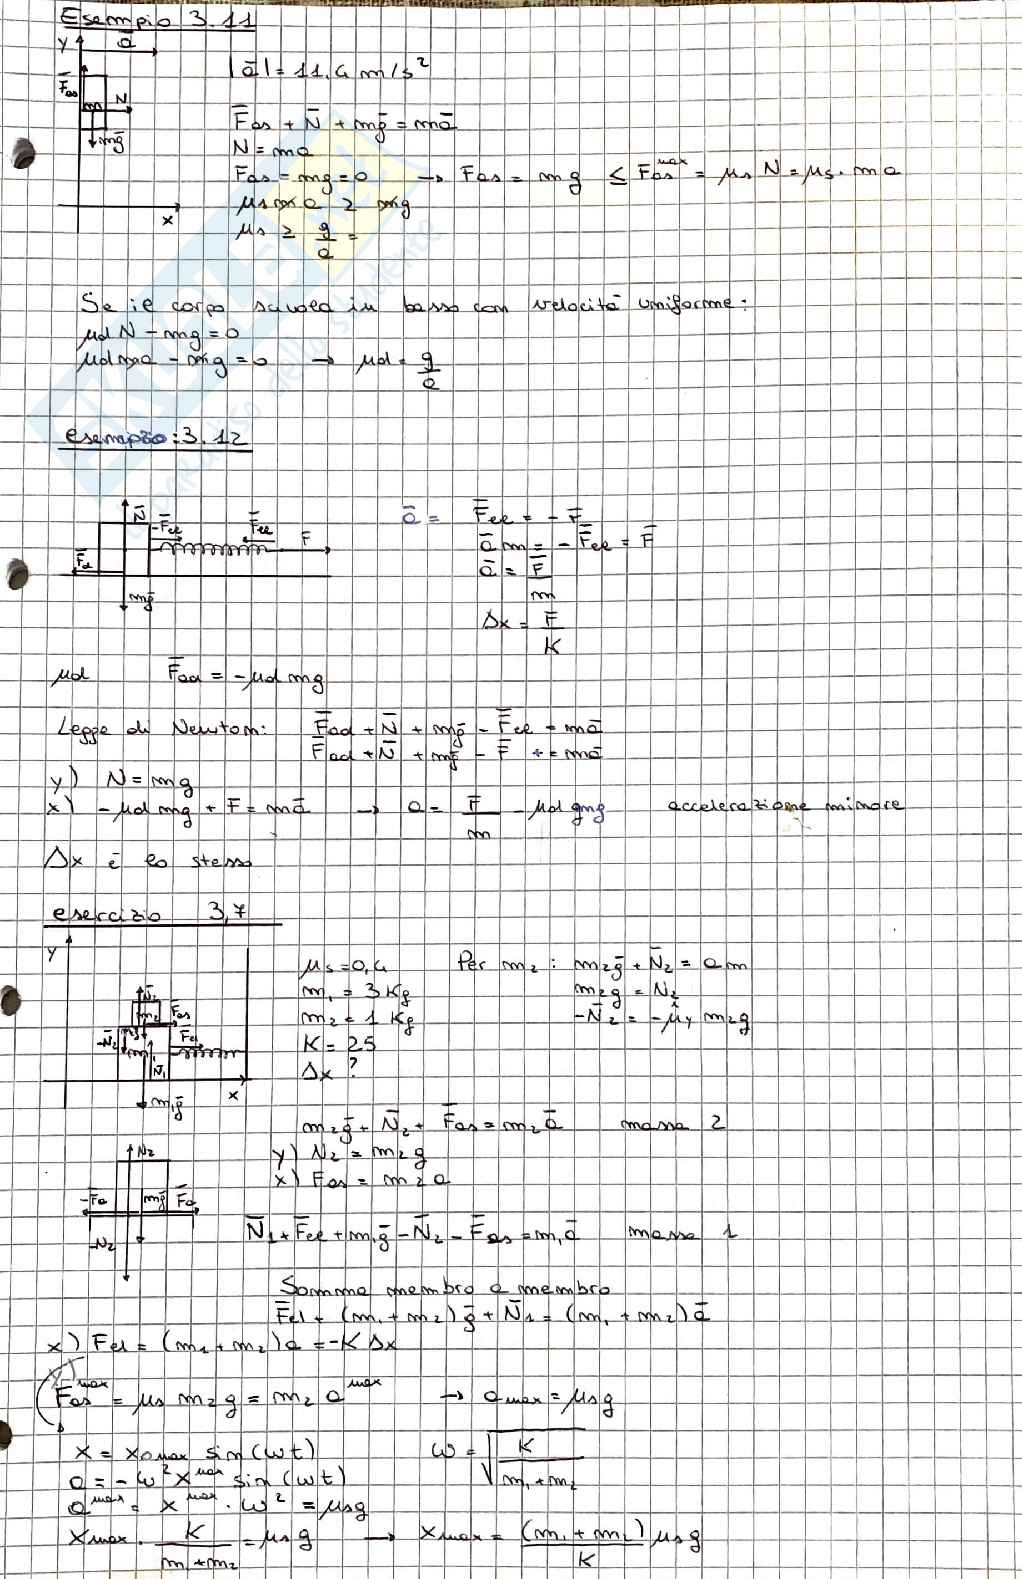 Esempio 3.11
y ā
|ā| = 11,4 m/s²
F̄as
m N
mḡ
x
F̄as + N̄ + mḡ = mā
N = ma
Fas = mg = 0 → Fas = mg ≤ Fas^max = μs N = μs · ma
μs m a ≥ mg
μs ≥ g/a =
Se il corpo scivola in basso con velocità uniforme:
μd N - mg = 0
μd ma - mg = 0 → μd = g/a
esempio: 3.12
N̄ -F̄el F̄el F
F̄d
mḡ
ā = F̄el = - F̄
ā m = - F̄el = F̄
ā = F̄/m
Δx = F̄/K
μd F̄ad = -μd mg
Legge di Newton: F̄ad + N̄ + mḡ - F̄el = mā
F̄ad + N̄ + mḡ - F̄ + = mā
y) N = mg
x) -μd mg + F = mā → a = F̄/m - μd g accelerazione minore
Δx è lo stesso
esercizio 3,7
y
N̄2
m2 F̄as
-N̄2 F̄el
N̄1
m1ḡ x
μs = 0,4
m1 = 3 Kg
m2 = 1 Kg
K = 25
Δx ?
Per m2: m2ḡ + N̄2 = am
m2g = N2
-N̄2 = -μ̂y m2g
m2ḡ + N̄2 + F̄as = m2ā massa 2
y) N2 = m2g
x) Fas = m2a
N2
-F̄a mḡ F̄a
-N2
N̄1 + F̄el + m1ḡ - N̄2 - F̄as = m1ā massa 1
Somma membro a membro
F̄el + (m1 + m2)ḡ + N̄1 = (m1 + m2)ā
x) Fel = (m1 + m2)a = -K Δx
Fas^max = μs m2 g = m2 a^max → amax = μs g
x = xomax sin(ωt) ω = √(K/(m1+m2))
a = -ω² x^max sin(ωt)
a^max = x^max · ω² = μsg
xmax · K/(m1+m2) = μs g → xmax = (m1 + m2) μs g / K